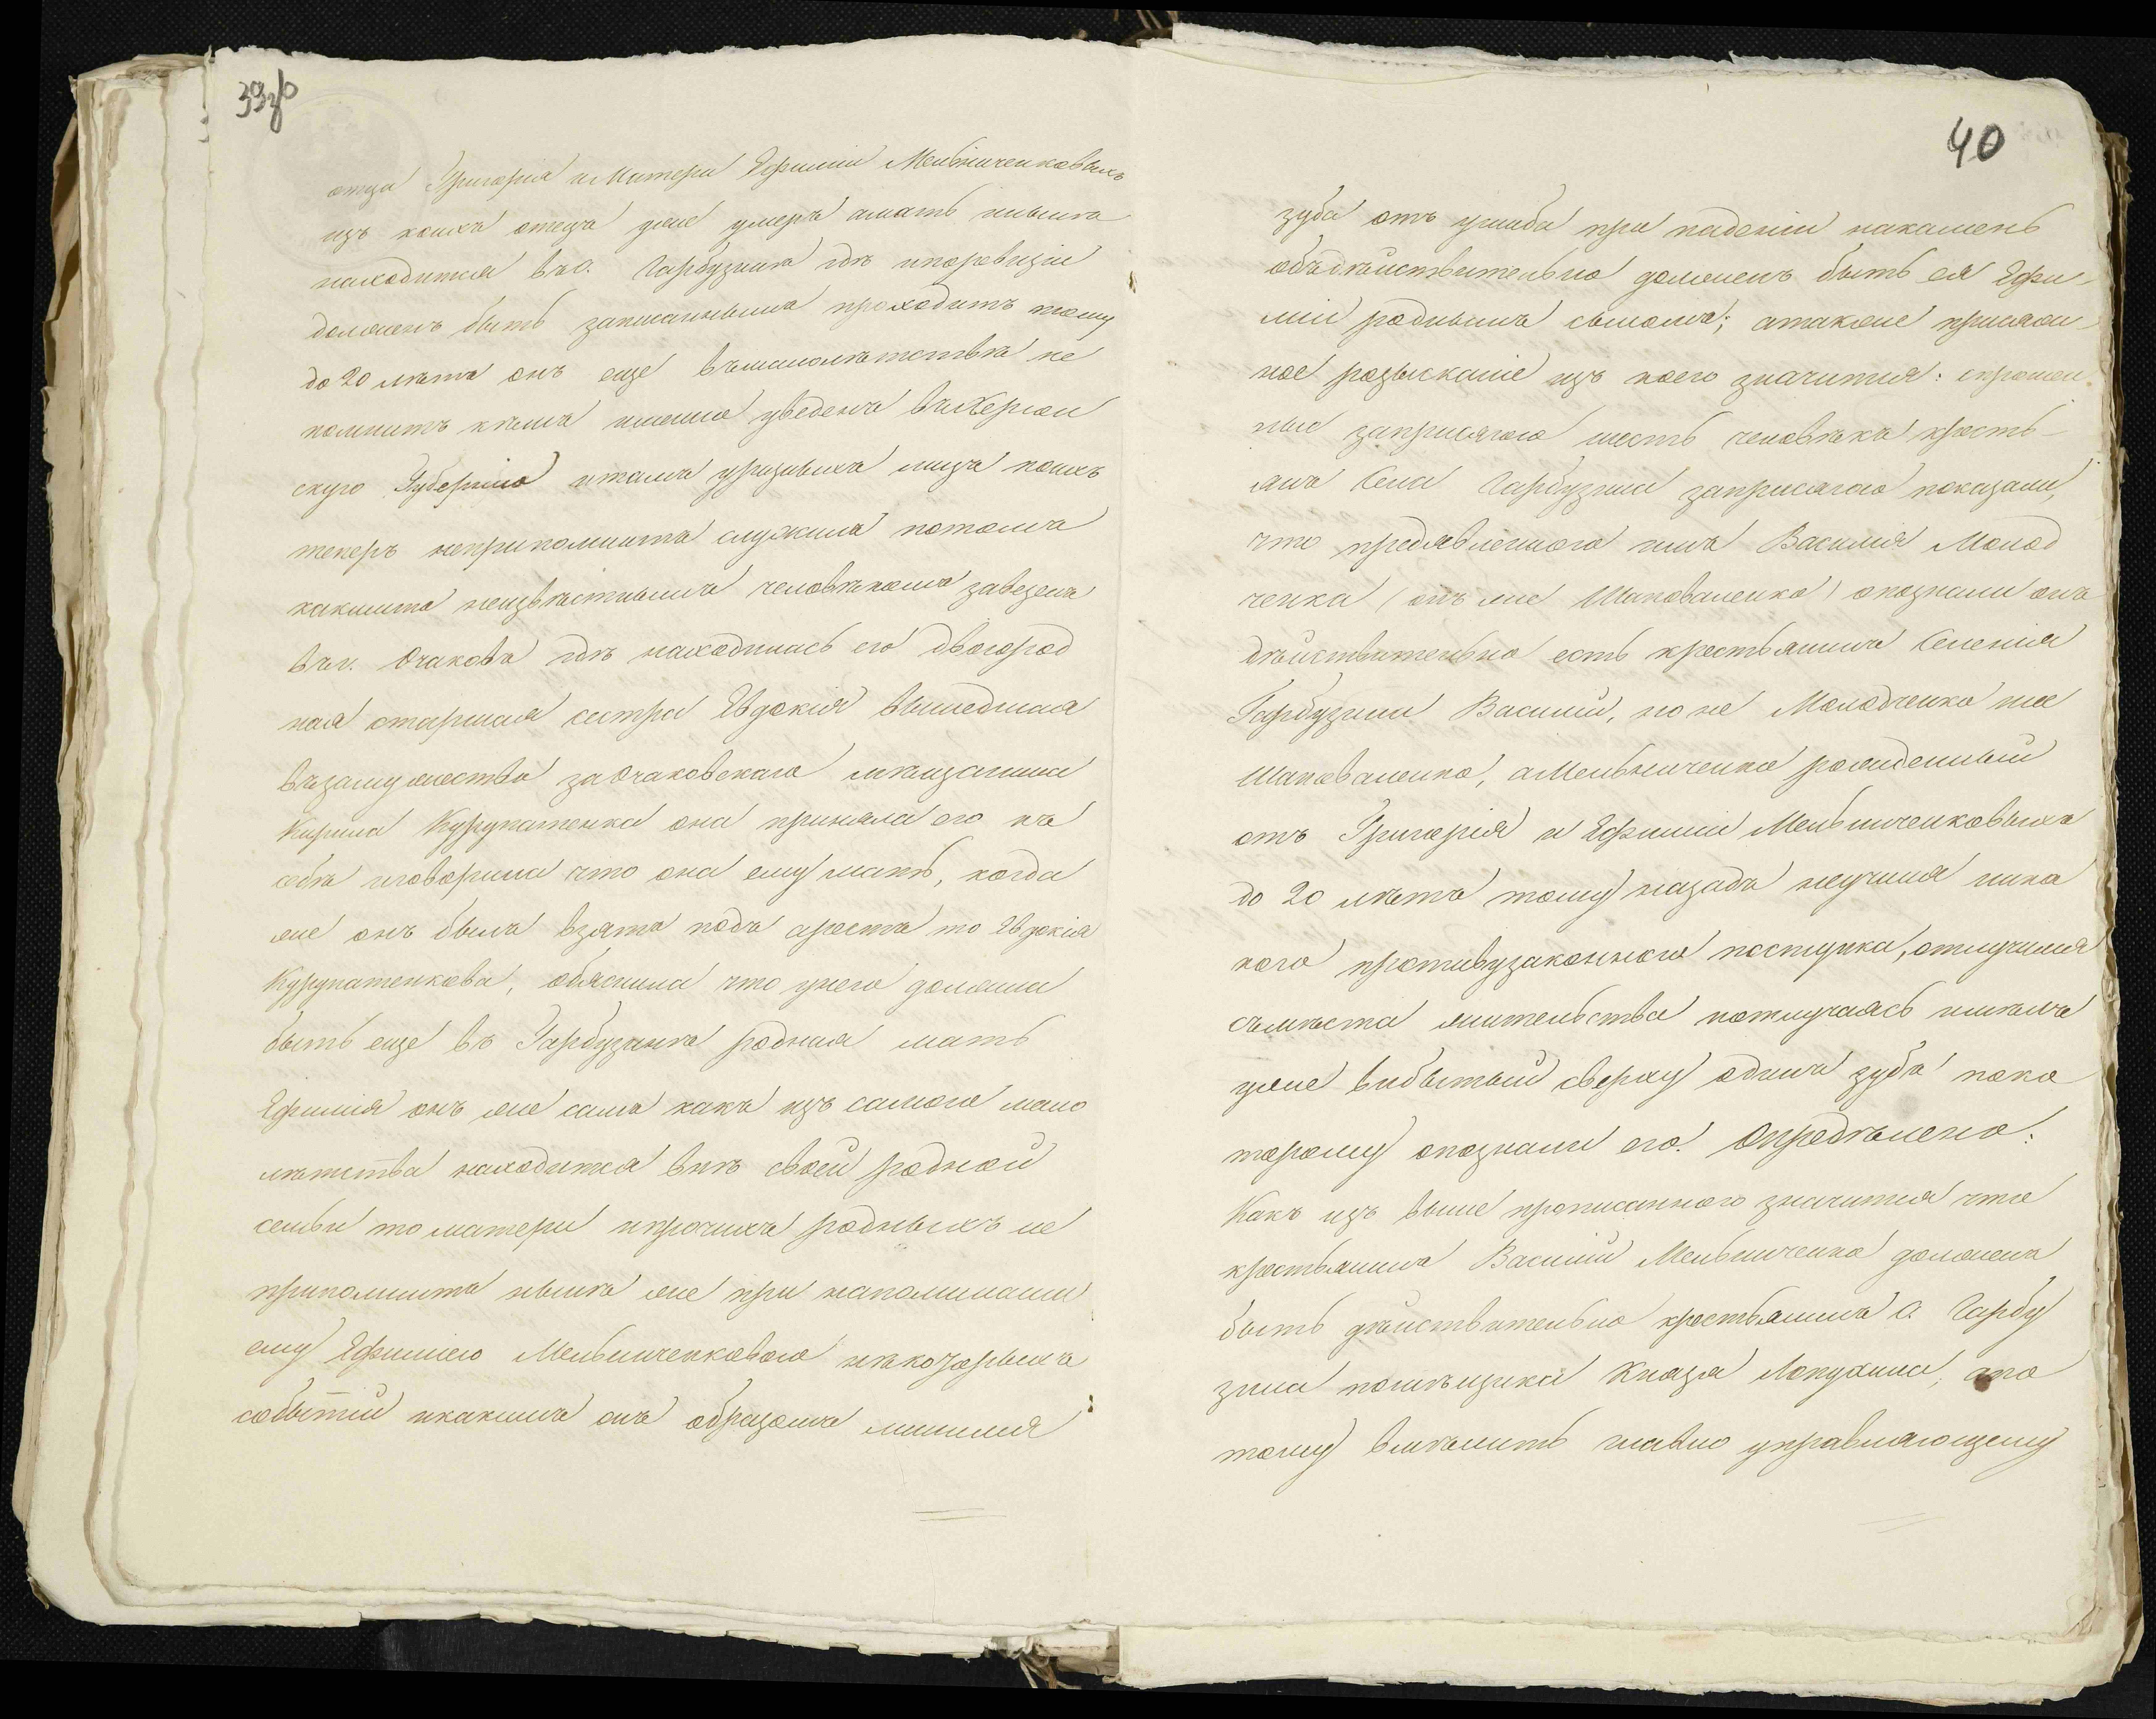 39об
отца Григорія и Матери Ефиміи Мельниченковыхъ
изъ коихъ отецъ уже умеръ амать нынѣ
находится въ с. Гарбузинѣ гдѣ ипоревизіи
долженъ быть записаннымъ проходитъ тому
до 20 лѣтъ онъ еще въмалолѣтствѣ не
помнитъ кѣмъ имѣнно уведенъ въ Херсон
скую Губернію итамъ уразныхъ лицъ коихъ
теперъ неприпомнитъ служилъ потомъ
какимто неизвѣстнымъ человѣкомъ завезенъ
въ г. Очаковъ гдѣ находилась его двоюрод
ная старшая сестра Евдокія вышедшая
въ замужество за Очаковскаго мѣщанина
Кирила Курупатенка она приняла его къ
себѣ иговорила что она ему мать, когда
же онъ былъ взятъ подъ арестъ то Евдокія
Курупатенкова, обяснила что унего должна
быть еще въ Гарбузинѣ родная мать
Ефимія онъ же самъ какъ изъ самого мало
лѣтства находится внѣ своей родной
семьи то матери ипрочихъ родныхъ не
припомнитъ нынѣ же при напоминаніи
ему Ефиміею Мельниченковою нѣкоторыхъ
событій икакимъ онъ образомъ лишился
40
зуба отъ ушиба при паденіи накамень
объ дѣйствительно долженъ быть ея Ефи-
міи роднымъ сыномъ; атакже присяж-
ное розысканіе изъ коего значится: спрошен-
ные заприсягою шесть человѣкъ кресть-
янъ Села Гарбузина заприсягою показали,
что предявленного имъ Василія Молод
ченка (онъ же Шаповаленко) опознали онъ
дѣйствительно есть крестьянинъ Селенія
Гарбузина Василій, но не Молодченко ине
Шаповаленко, аМельниченко рожденный
отъ Григорія и Ефиміи Мельниченковыхъ
до 20 лѣтъ тому назадъ неучиня ника
кого противузаконного поступка, отлучился
съмѣста жительства иотлучаясь имѣлъ
уже выбытый сверху одинъ зубъ поко
торому опознали его. Опредѣлено:
Какъ изъ выше прописанного значится что
крестьянинъ Василій Мельниченко долженъ
быть дѣйствительно крестьянинъ с. Гарбу
зина помѣщика Князя Лопухина, апо
тому вмѣнить главно управляющему